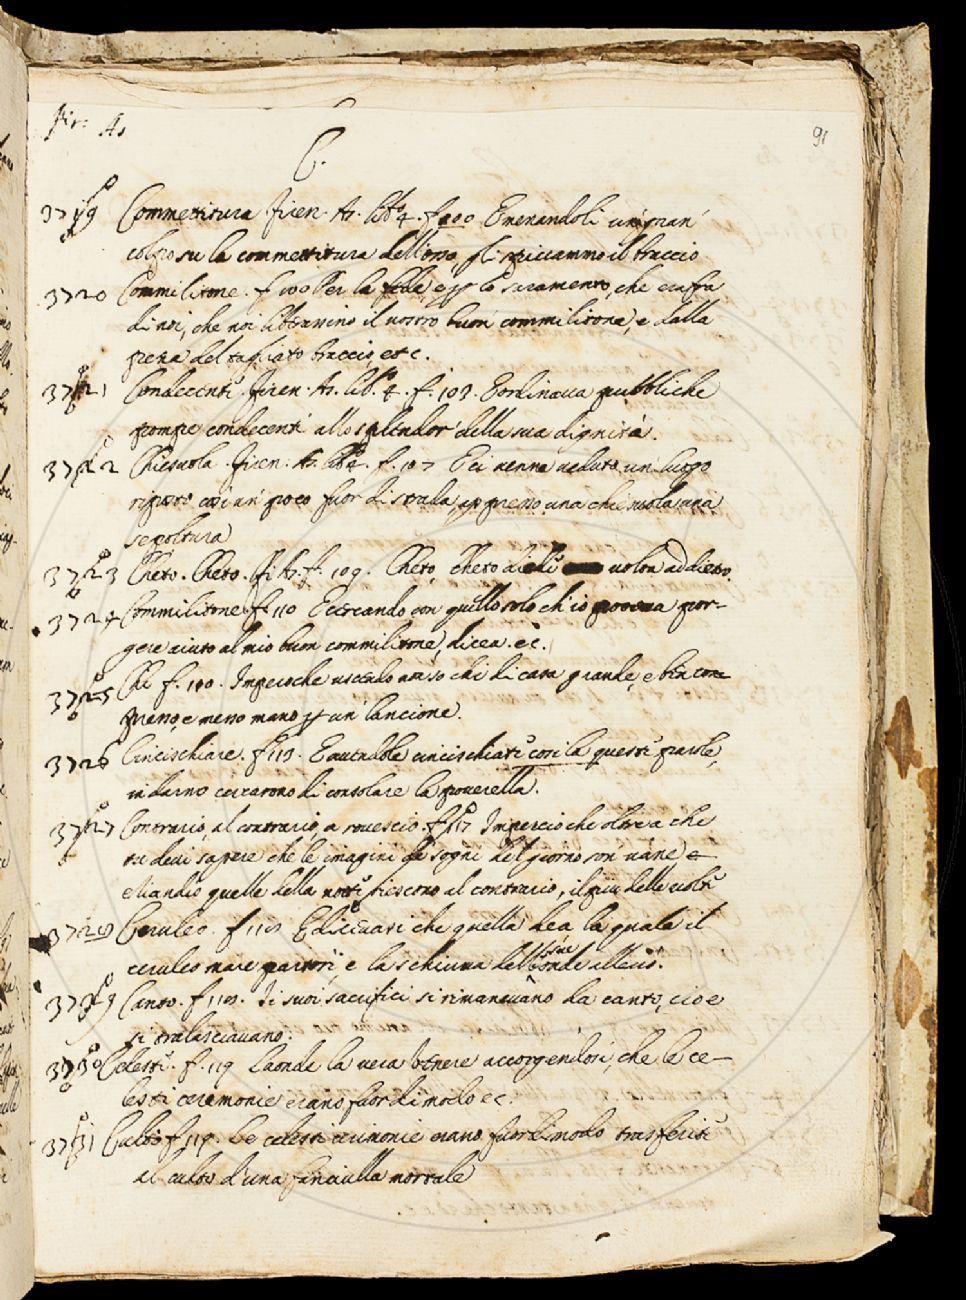 Fir: As
91
C.
3719 Commettitura. Firen. As. lib.º 4. f. 100 E menandoli un gran
colpo su la commettitura dell'osso gli spiccammo il braccio
3720 Commilitone. f. 100 Per la fede, e pp lo saramento, che era fra
di noi, che noi liberasseno il nostro buon commilitone, e dalla
pena del tagliato braccio, etc.
3721 Condecenti. Firen. As. lib.º 4. f. 103. E ordinava pubbliche
pompe condecenti allo splendor della sua dignità.
3722 Chiesuola. Firen. As. lib. 4. f. 107 E ci venne veduto un luogo
riposto così un poco fuor di strada, appresso una chiesuola, una
sepoltura
3723 Cheto. Cheto. Fi. As. f. 109. Cheto, cheto volta addietro
3724 Commilitone f. 110 E cercando con quello solo ch'io poteva por-
gere aiuto al mio buon commilitone, dicea. ec.
3725 Chi f. 110. Imperoche uscendo chi di casa grande, e
mezzo, e messo mano pp un lancione.
3726 Cincischiare. f. 113. E avendole cincischiate così la queste parole,
indarno cercarono di consolare la poverella.
3727 Contrario, al contrario, a rovescio. f. 117 Impercioche oltre a che
tu devi sapere che le imagini de sogni del giorno son vane, e
etiandio quelle della notte riescono al contrario, il piu delle volte
3728 Ceruleo. f. 118 E dicevasi che quella dea la quale il
ceruleo mare partorì, e la schiuma dell'onde allevò.
3729 Canto. f. 118. Ii suoi sacrifici si rimanevano da canto, cioè
si tralasciavano.
3730 Celesti. f. 119 Laonde la vera Venere accorgendosi, che le ce-
lesti ceremonie erano fuor di modo ec.
3731 Culto f. 119. Le celesti cerimonie erano fuor di modo trasferite
al culto d'una fanciulla mortale